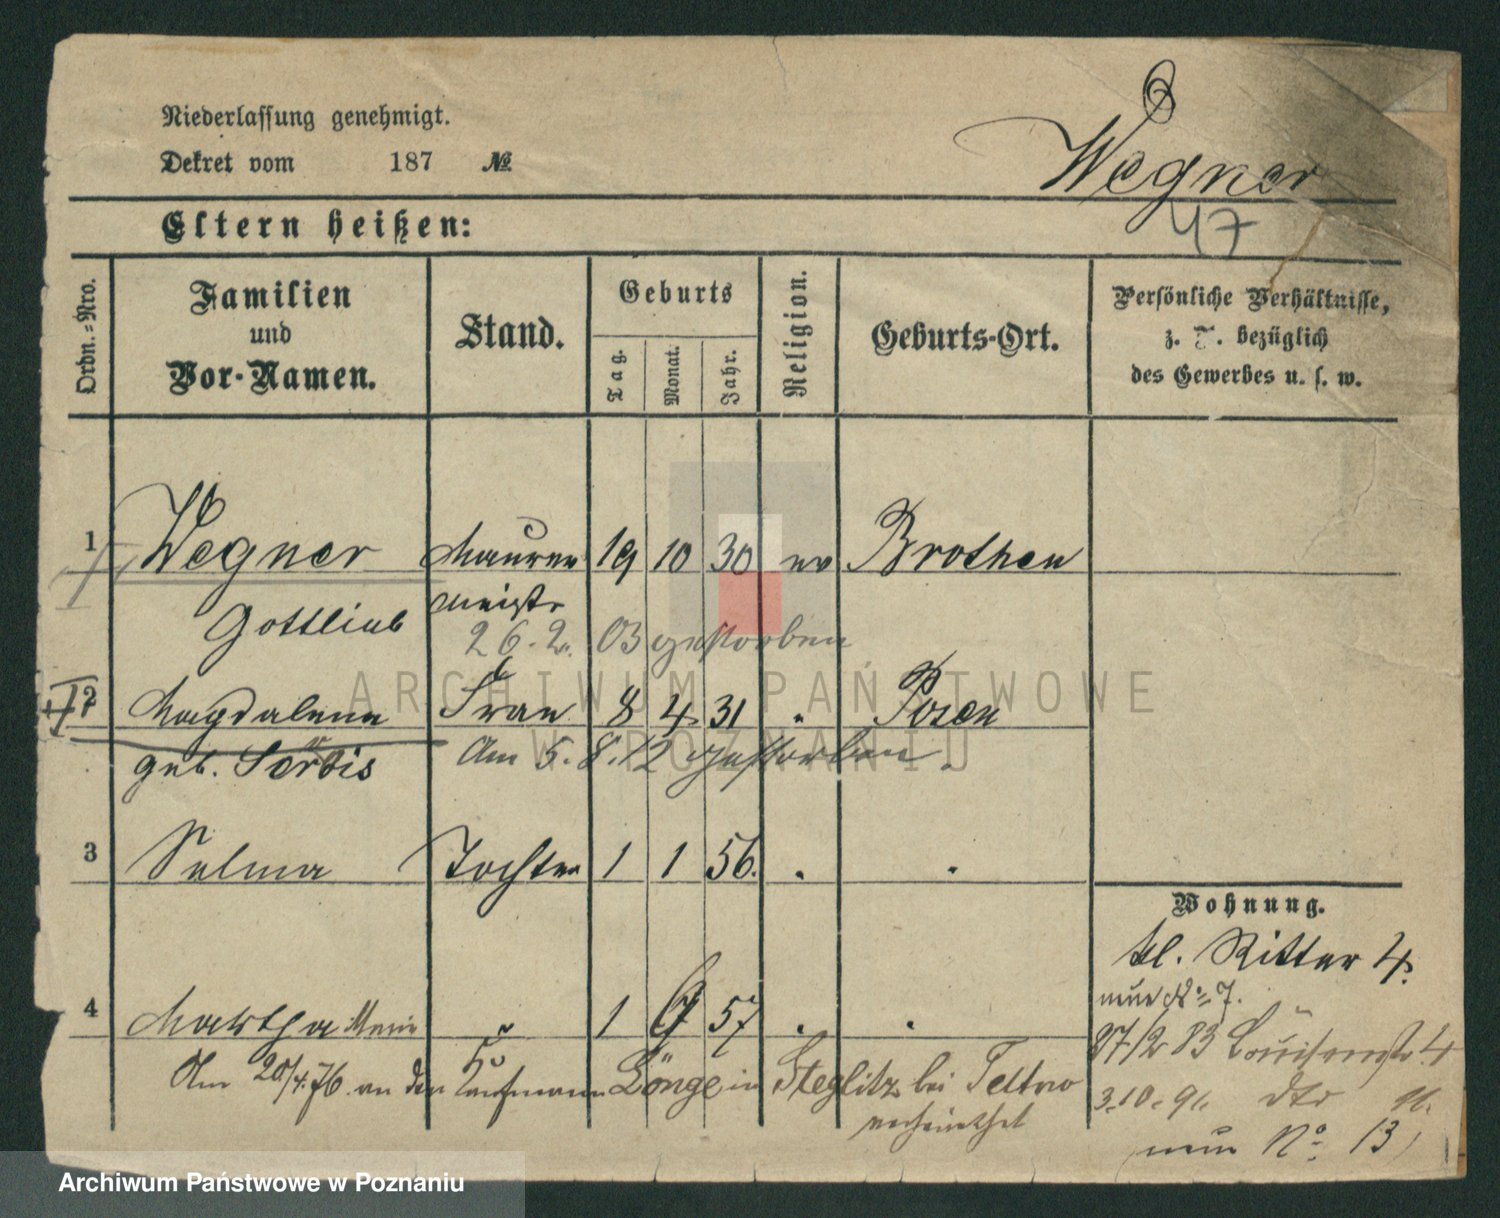 Niederlassung genehmigt.
Dekret vom 187 №
Wegner
47
Eltern heißen:
Ordn.-Nro.
Familien und Vor-Namen.
Stand.
Geburts
Tag. Monat. Jahr.
Religion.
Geburts-Ort.
Persönliche Verhältnisse,
z. T. bezüglich
des Gewerbes u. s. w.
1 Wegner Maurer 19 10 30 ev Brothen
Gottlieb meistr
26.2. 03 gestorben
2 Magdalena Frau 8 4 31 " Posen
geb. Serbis Am 5.8.12 gestorben.
3 Selma Tochter 1 1 56. " "
Wohnung.
kl. Ritter 4.
neue No 7.
4 Martha Marie " 1 9 57 " "
27/2 83 Louisenstr. 4
Am 20/4.76 an den Kaufmann Länge in Steglitz bei Teltow
verheirathet
3.10.91. dto
neue No 13
ARCHIWUM PAŃSTWOWE
W POZNANIU
Archiwum Państwowe w Poznaniu